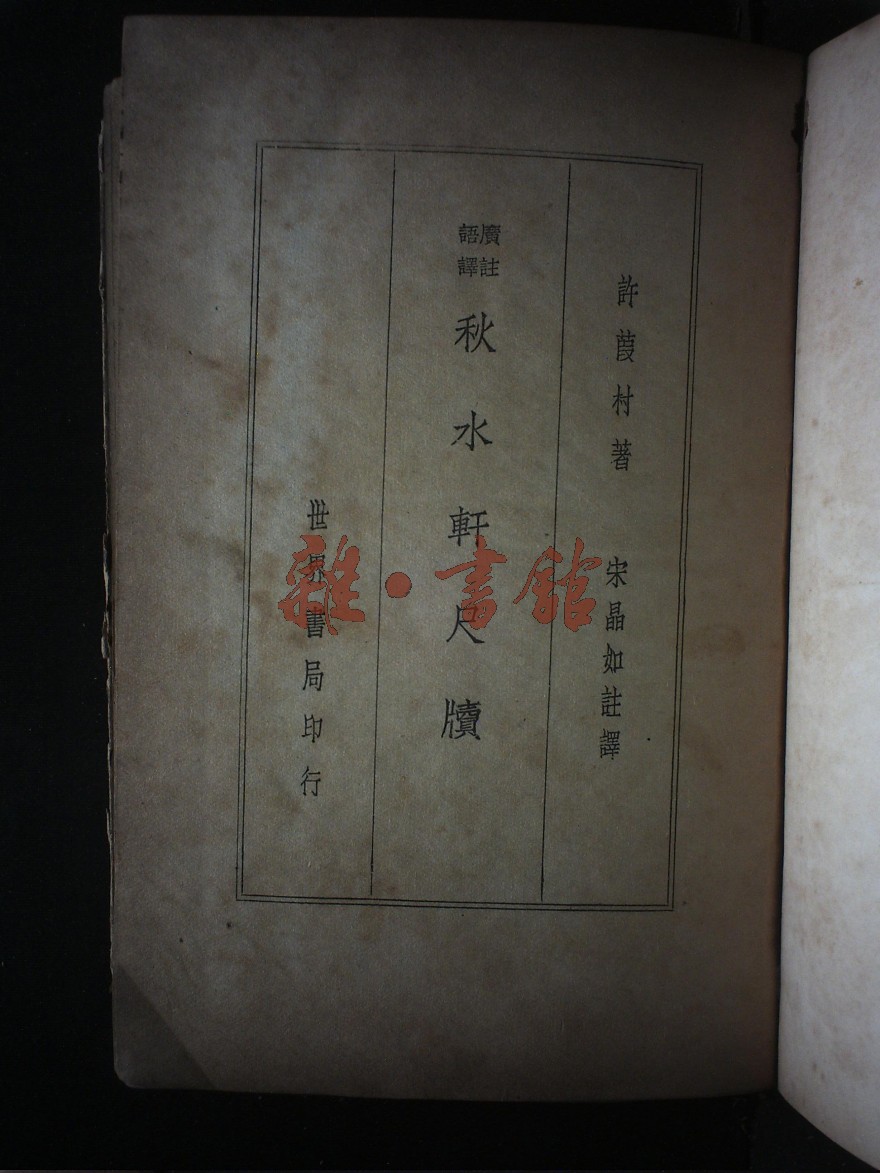 許葭村著 宋晶如註譯
廣註
語譯
秋水軒尺牘
世界書局印行
雜·書館